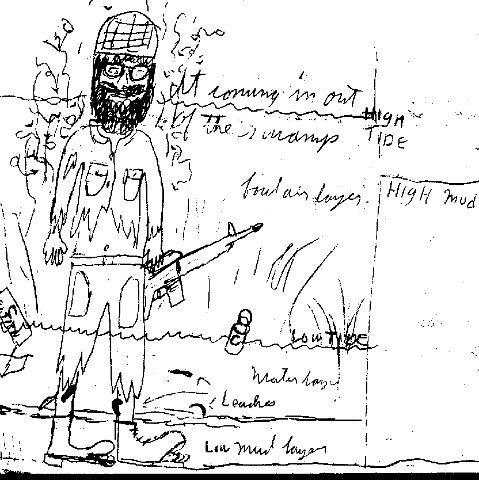 at coming in out
of the swamps
HIGH
TIDE
foul air layer.
HIGH Mud
LOW TIDE
Water layer
Leaches
Low Mud layer